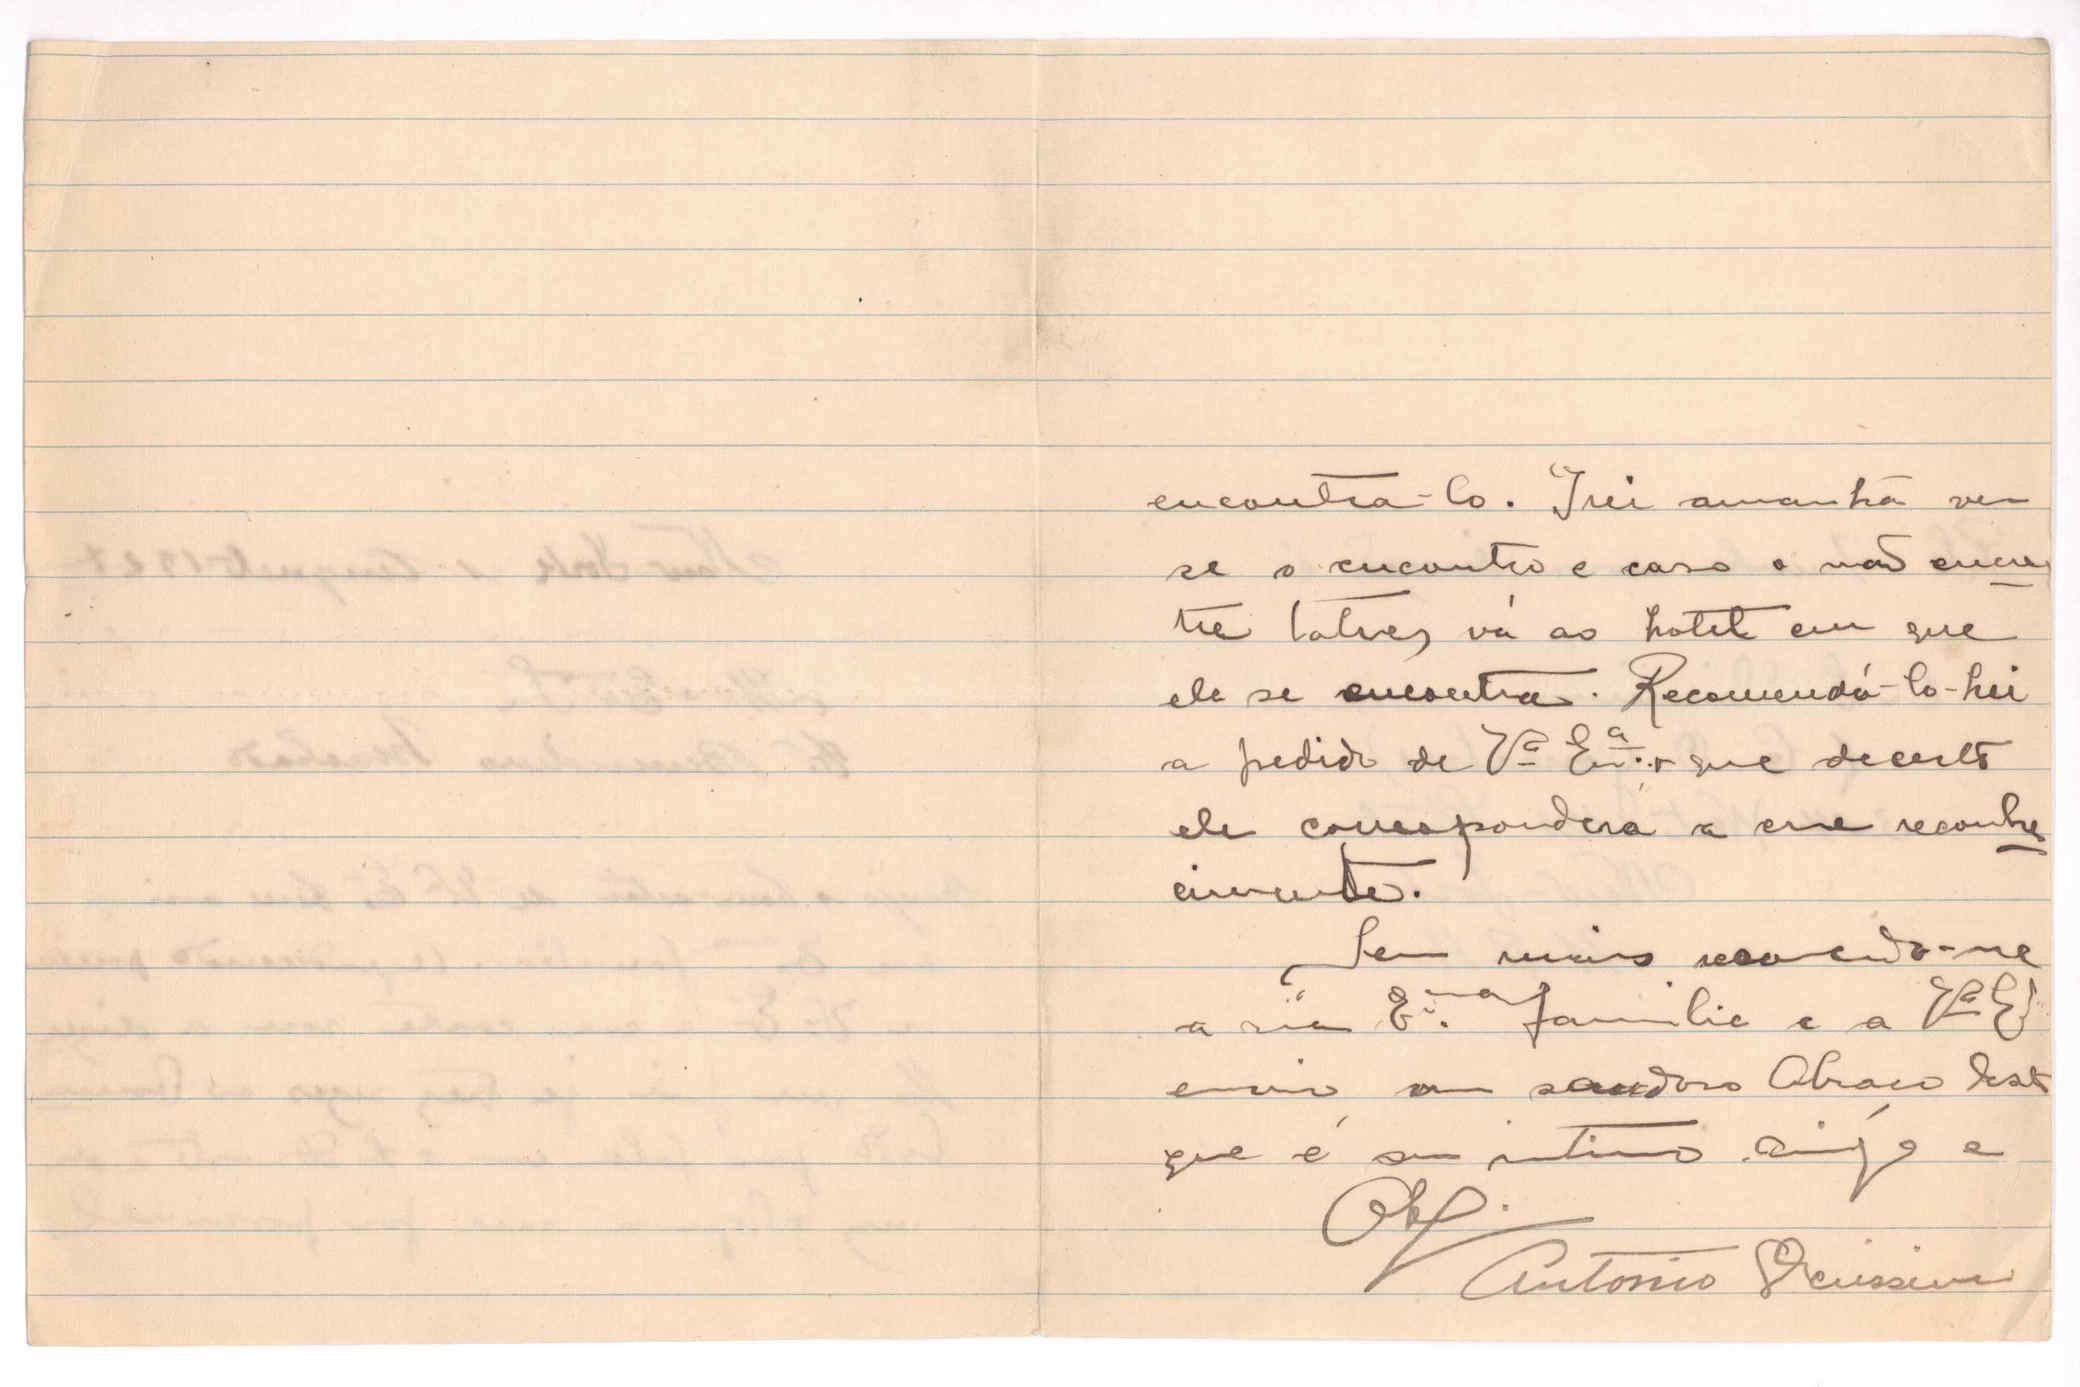 encontra-lo. Irei amanhã ver
se o encontro e caso o não encon
tre talvez vá ao hotel em que
ele se encontra. Recomendá-lo-hei
a pedido de Vª Exª. e que decerto
ele corresponderá a esse reconhe
cimento.
Sem mais recomendo-me
a sua Exma. familia e a Vª Eª
envio um saudoso Abraço deste
que é seu intimo amigo e
Obg.
Antonio